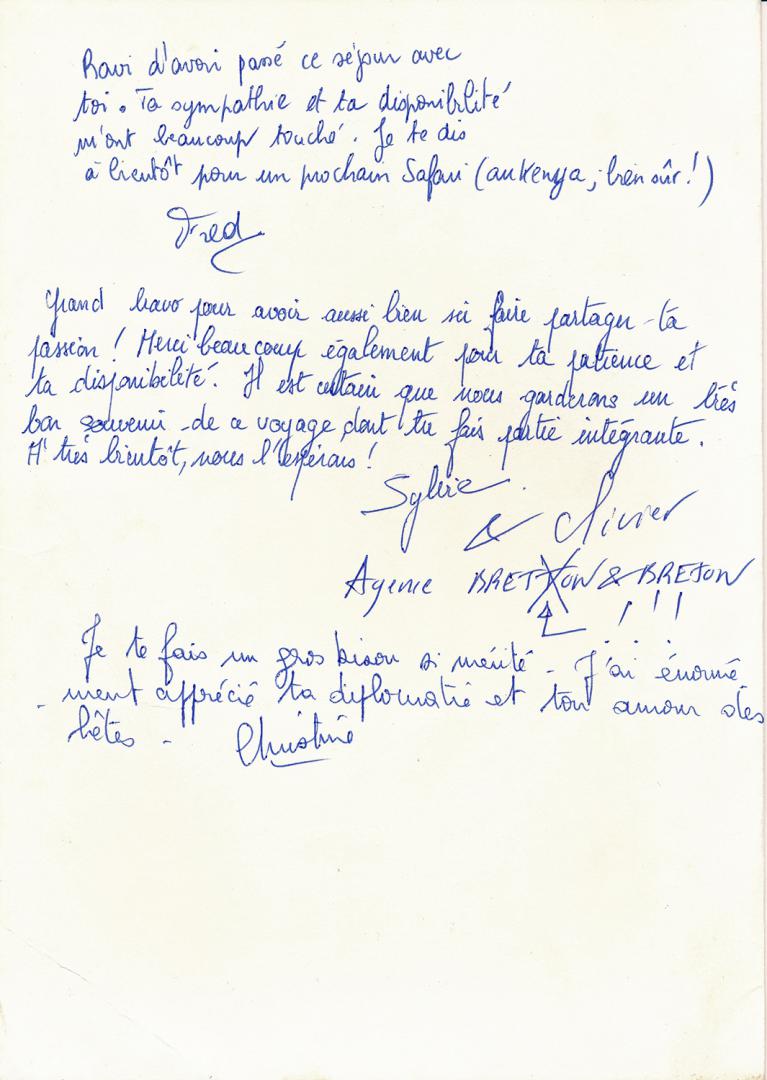 Ravi d'avoir passé ce séjour avec
toi. Ta sympathie et ta disponibilité
m'ont beaucoup touché. Je te dis
à bientôt pour un prochain Safari (au Kenya, bien sûr!)
Fred
Grand bravo pour avoir aussi bien su faire partager ta
passion! Merci beaucoup également pour ta patience et
ta disponibilité. Il est certain que nous garderons un très
bon souvenir de ce voyage dont tu fais partie intégrante.
A très bientôt, nous l'espérons!
Sylvie
& Olivier
Agence BRETON & BRETON
!!!
Je te fais un gros bisou si mérité - J'ai énormé
-ment apprécié ta diplomatie et ton amour des
bêtes - Christine